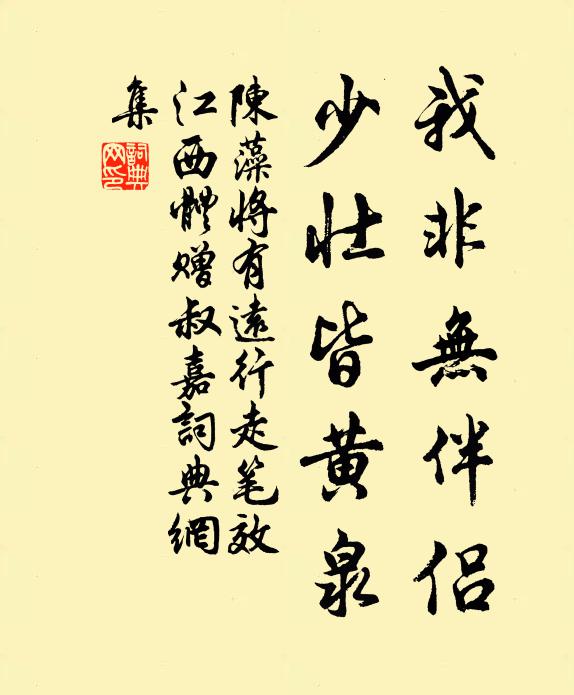 我非無伴侶
少壯皆黄泉
陳藻將有遠行走笔效
江西體贈叔嘉詞典網
集
詞典
網印